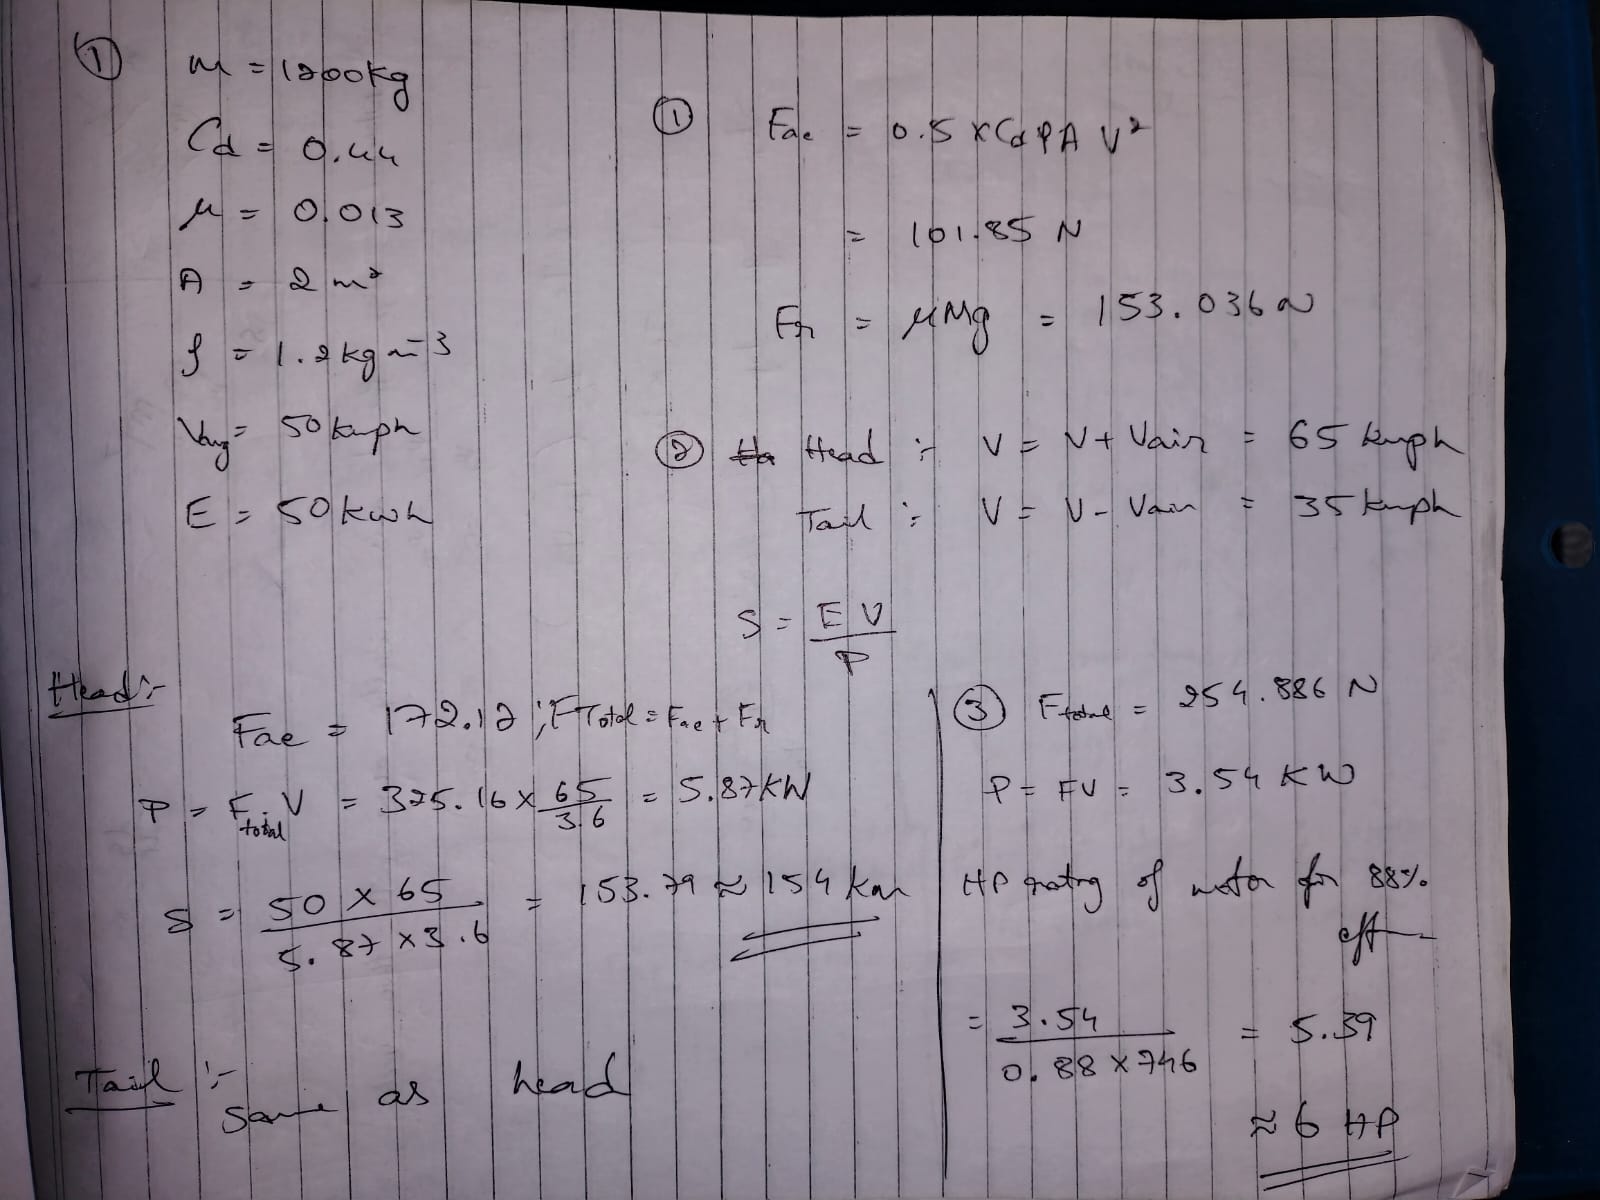 ① m = 1200kg
Cd = 0.44
μ = 0.013
A = 2 m²
ρ = 1.2 kg m⁻³
Vavg = 50 kmph
E = 50 kwh
① Fae = 0.5 x Cd ρ A V²
= 101.85 N
Fr = μMg = 153.036 N
② Head :- V = V + Vair = 65 kmph
Tail :- V = V - Vair = 35 kmph
S = EV/P
Head :-
Fae = 172.12 ; FTotal = Fae + Fr
P = Ftotal . V = 325.16 x 65/3.6 = 5.87 KW
S = (50 x 65)/(5.87 x 3.6) = 153.79 ≈ 154 km
Tail :- Same as head
③ Ftotal = 254.886 N
P = FV = 3.54 KW
HP rating of motor for 88%
eff
= 3.54/(0.88 x 746) = 5.39
≈ 6 HP